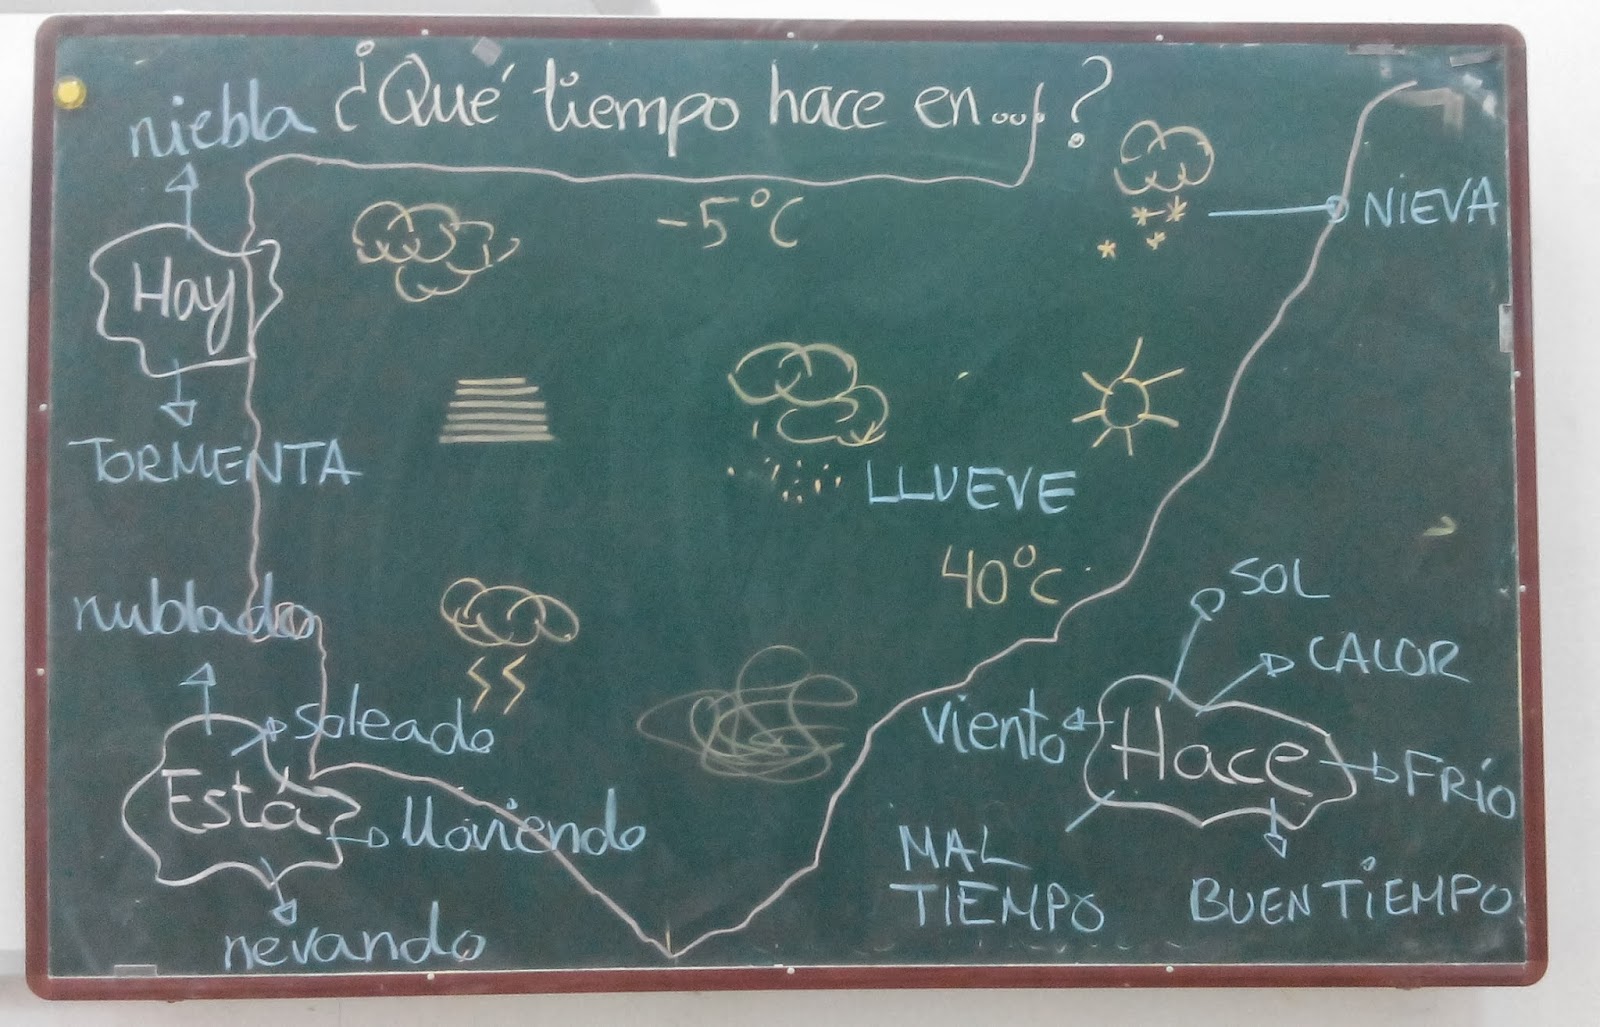 ¿Qué tiempo hace en...?
niebla
Hay
TORMENTA
-5°C
NIEVA
LLUEVE
40°C
nublado
soleado
Está
lloviendo
nevando
SOL
CALOR
viento
Hace
FRÍO
MAL
TIEMPO
BUEN TIEMPO